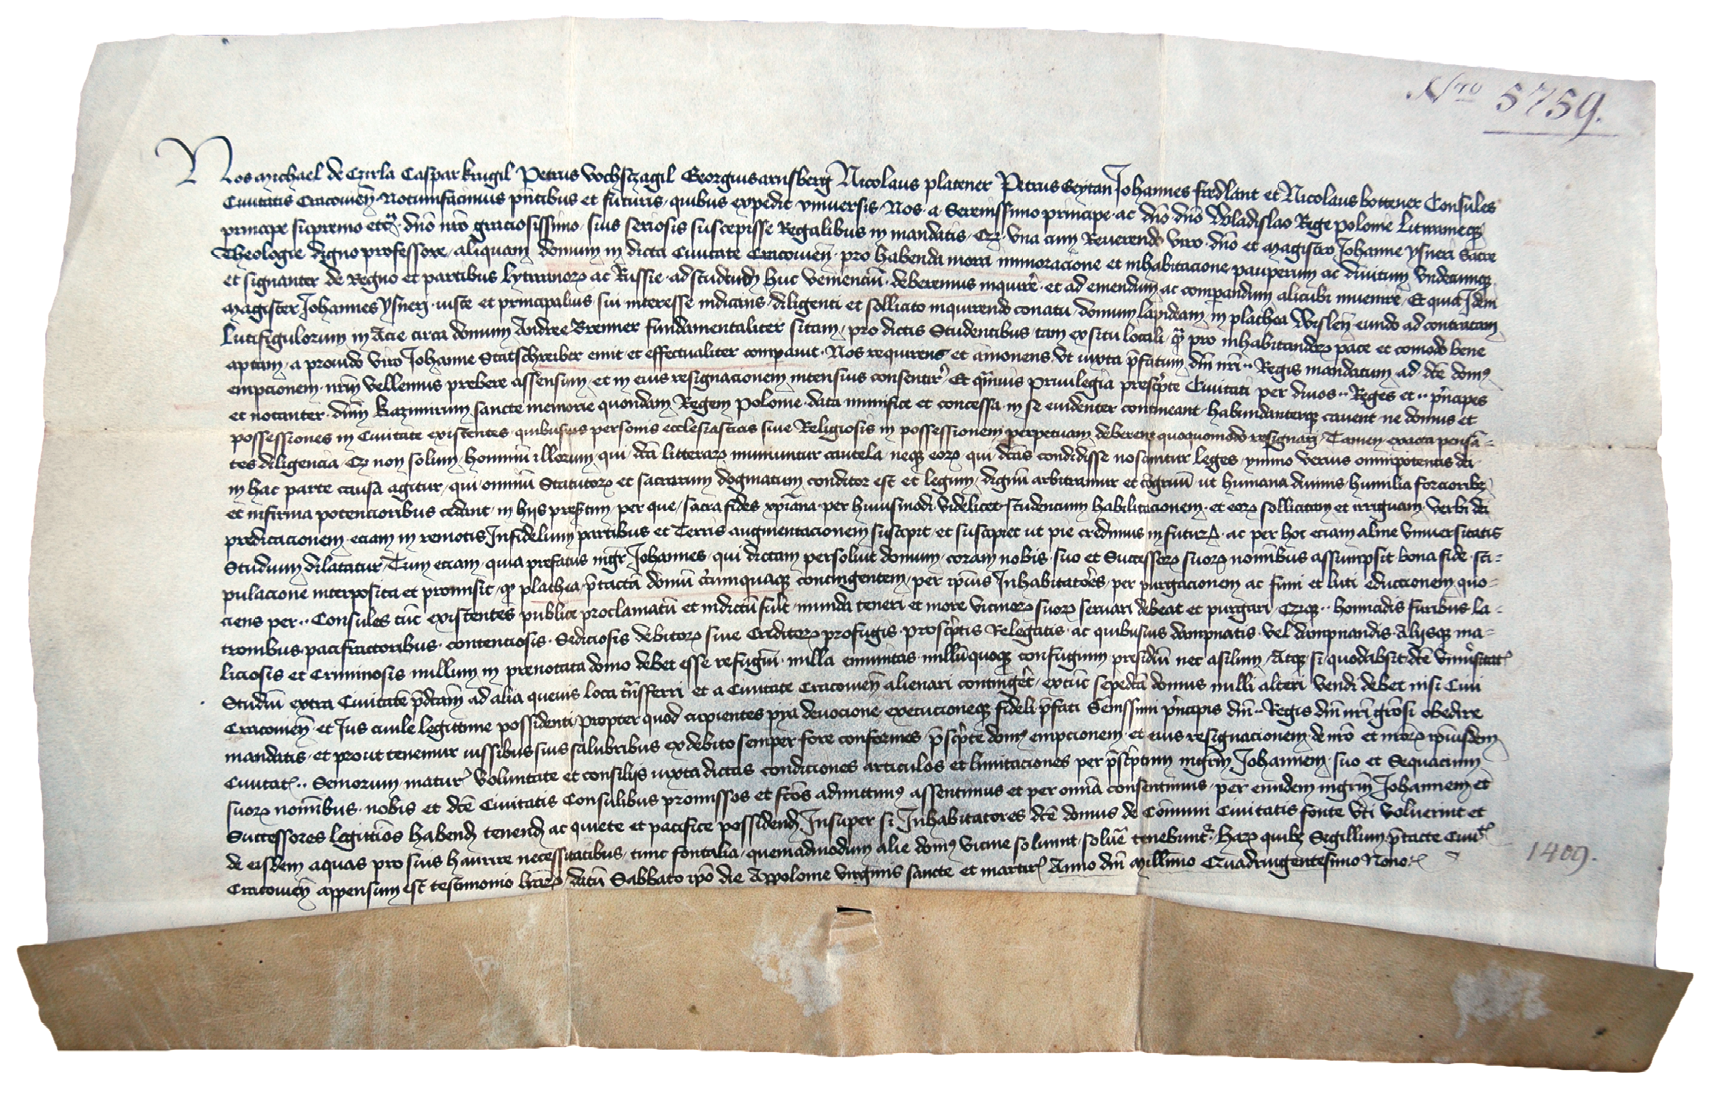 Nto 5759.
Nos Michael de Czirla Caspar krugil Petrus vochsczagil Georgius arnsberg Nicolaus platener Petrus Geytan Johannes ferdlant et Nicolaus bottener Consules
Civitatis Cracovien̄ Notumfacimus pn̄tibus et futuris quibus expedit vniversis Nos a Serenissimo principe ac dn̄o dn̄o Wladislao Rege polonie Litwanieqꝫ
principe supremo etc̄ dn̄o nr̄o graciosissimo suis seriosis suscepisse Regalibus in mandatis Qꝫ vna cum Reuerendo viro dn̄o et Magistro Johanne ysneri Sacre
Theologie digno professore aliquam domum in dicta Ciuitate Cracouien̄ pro habenda mora inmoracione et inhabitacione pauperum ac diuitum vndecumqꝫ
et signanter de Regno et partibus Lytwanoꝝ ac Russie ad studendū huc veniencium deberemus inquirere et ad emendum ac comparandum alicubi inuenire Et quia Idem
Magister Johannes ysneri iuste et principalius sui interesse indicans diligenti et sollicito inquirendo conatu domum lapideam in plathea Wislen̄ eundo ad contratam
Lutifigulorum in Acie circa domum Andree Brenner fundamentaliter sitam pro dictis Studentibus tam ex situ locali qͣꝫ pro inhabitandoꝝ pace et comodo bene
aptam a prouido viro Johanne Statschreiber emit et effectualiter comparauit Nos requirens et amonens vt iuxta p̄fatum dn̄i nr̄i Regis mandatum ad dc̄e domꝰ
empcionem nr̄m vellemus prebere assensum et in eius resignacionem intensius consentire Et qͣmuis Priuilegia prescp̄te Ciuitati per diuos Reges et pn̄cipes
et notanter dn̄m kazimirum sancte memorie quondam Regem Polonie data munifice et concessa in se euidenter contineant habundanterqꝫ caueant ne domus et
possessiones in Ciuitate existentes quibusuis personis ecclesiasticis siue Religiosis in possessionem perpetuam deberent quoquomodo resignari Tamen exacta pensan̄
tes diligencia Qꝫ non solum hominum illorum qui dc̄a litteraꝝ muniuntur cautela neqꝫ eoꝝ qui dc̄as condidisse noscuntur leges ymmo verius omnipotentis dei
in hac parte causa agitur qui omniū Statutoꝝ et sacrarum dogmatum conditor est et legum dignum arbitramur et cōgruū ut humana diuinis humilia forcioribꝫ
et infirma potencioribus cedant in hijs presertim per que sacra fides xp̄iana per huiusmodi videlicet studentum habilitacionem et eoꝝ sollicitam et irriguam verbi dei
predicacionem eciam in remotis Infidelium partibus et Terris augmentacionem suscepit et suscipiet ut pie credimus in futuꝝ ac per hoc etiam alme Vniuersitatis
Studium dilatatur Tum etiam quia prefatus mgr̄ Johannes qui dictam persoluit domum coram nobis suo et Successoꝝ suoꝝ nominibus assumpsit bona fide sti-
pulacione interposita et promisit qꝫ plathea p̄tactā domū vtrimqueqꝫ contingentem per ipsius Inhabitatores per purgacionem ac fimi et luti educcionem quo-
ciens per Consules tūc existentes publice proclamatū et indictū fuit munda teneri et more vicinoꝝ suoꝝ seruari debeat et purgari Qꝫqꝫ homicidis furibus la-
tronibus pacifractoribus contenciosis Sediciosis debitoꝝ siue Creditoꝝ profugis proscriptis Relegatis ac quibusuis dampnatis vel dampnandis Alijsqꝫ ma-
liciosis et Criminosis nullum in prenotata domo debet esse refugiū nulla emunitas nullūquoqꝫ confugium presidiū nec asilum Atqꝫ si quodabsit dc̄e vniuersitatꝭ
Studiū extra Ciuitatē p̄dcām ad alia queuis loca trn̄sferri et a Ciuitate Cracouien̄ alienari contingeret extūc sepedc̄a domus nulli alteri vendi debet nisi Ciui
Cracouien̄ et Ius ciuile legittime possidenti propter quod cupientes pura deuocione execucioneqꝫ fideli p̄fati Senissimi pn̄cipis dn̄i Regis dn̄i nr̄i grosi obedire
mandatis et prout tenemur iussibus suis salubribus ex debito semper fore conformes p̄scp̄te domꝰ empcionem et eius resignacionem de nr̄o et nr̄oꝝ ipsiusdem
Ciuitatꝭ Seniorum maturꝭ voluntate et consilijs iuxta dictas condiciones articulos et limitaciones per p̄scp̄tum mgr̄m Johannem suo et Sequacium
suoꝝ nominibus nobis et dc̄e Ciuitatis Consulibus promissos et fc̄os admittimꝰ assentimus et per omnia consentimus per eundem mgr̄m Johannem et
Successores legittimos habend̄ tenend̄ ac quiete et pacifice possidend̄ Insuper si Inhabitatores dc̄e domus de Cōmuni Ciuitatis fonte vti voluerint et
de eisdem aquas pro suis haurire necessitatibus tunc fontalia quemadmodum alie domꝰ vicine soluunt soluē tenebuntꝭ Haꝝ quibꝫ Sigillum p̄tacte Ciuitꝭ
Cracouien̄ appensum est testimonio lr̄aꝝ datū Sabbato ip̄o die Appolonie virginis sancte et martirꝭ Anno dn̄i Millimo Quadringentesimo Nonoꝭ
1409.